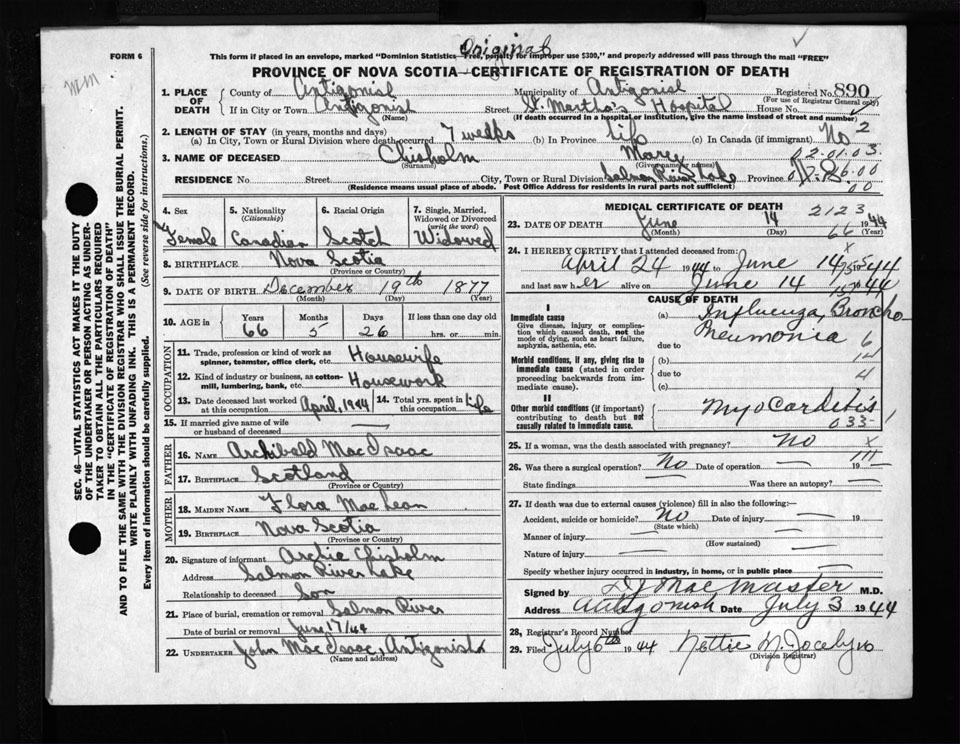 Original
FORM 6
This form if placed in an envelope, marked "Dominion Statistics—Free, penalty for improper use $300," and properly addressed will pass through the mail "FREE"
PROVINCE OF NOVA SCOTIA—CERTIFICATE OF REGISTRATION OF DEATH
1. PLACE OF DEATH
County of Antigonish Municipality of Antigonish Registered No. 890
(For use of Registrar General only)
If in City or Town Antigonish Street St. Martha's Hospital House No.
(Name) (If death occurred in a hospital or institution, give name instead of street and number)
2. LENGTH OF STAY (in years, months and days)
(a) In City, Town or Rural Division where death occurred 7 weeks (b) In Province life (c) In Canada (if immigrant) No 2
3. NAME OF DECEASED Chisholm Mary
(Surname) (Given name or names)
02.01.03.
RESIDENCE No. Street City, Town or Rural Division Salmon River Lake Province N.S.
(Residence means usual place of abode. Post Office Address for residents in rural parts not sufficient)
SEC. 46—VITAL STATISTICS ACT MAKES IT THE DUTY
OF THE UNDERTAKER OR PERSON ACTING AS UNDER-
TAKER TO OBTAIN ALL THE PARTICULARS REQUIRED
IN THE "CERTIFICATE OF REGISTRATION OF DEATH" AND TO FILE THE SAME WITH THE DIVISION REGISTRAR WHO SHALL ISSUE THE BURIAL PERMIT.
WRITE PLAINLY WITH UNFADING INK. THIS IS A PERMANENT RECORD.
Every item of information should be carefully supplied. (See reverse side for instructions.)
4. Sex
Female
5. Nationality
(Citizenship)
Canadian
6. Racial Origin
Scotch
7. Single, Married, Widowed or Divorced
(write the word)
Widowed
8. BIRTHPLACE Nova Scotia
(Province or Country)
9. DATE OF BIRTH December 19th 1877
(Month) (Day) (Year)
10. AGE in Years Months Days If less than one day
66 5 26 hrs. or min.
OCCUPATION
11. Trade, profession or kind of work as spinner, teamster, office clerk, etc. Housewife
12. Kind of industry or business, as cotton-mill, lumbering, bank, etc. Housework
13. Date deceased last worked at this occupation April, 1944
14. Total yrs. spent in this occupation life
15. If married give name of wife or husband of deceased —
FATHER
16. NAME Archibald MacIsaac
17. BIRTHPLACE Scotland
(Province or Country)
MOTHER
18. MAIDEN NAME Flora MacLean
19. BIRTHPLACE Nova Scotia
(Province or Country)
20. Signature of informant Archie Chisholm
Address Salmon River Lake
Relationship to deceased Son
21. Place of burial, cremation or removal Salmon River
Date of burial or removal June 17/44
22. UNDERTAKER John MacIsaac, Antigonish
(Name and address)
MEDICAL CERTIFICATE OF DEATH
2123
23. DATE OF DEATH June 14 1944
(Month) (Day) (Year)
66
24. I HEREBY CERTIFY that I attended deceased from:
April 24 1944 to June 14 1944
and last saw her alive on June 14 1944
CAUSE OF DEATH
I
Immediate cause
Give disease, injury or complication which caused death, not the mode of dying, such as heart failure, asphyxia, asthenia, etc.
(a) Influenza, Broncho
Pneumonia 6
due to
Morbid conditions, if any, giving rise to immediate cause (stated in order proceeding backwards from immediate cause).
(b)
due to 4
(c)
II
Other morbid conditions (if important) contributing to death but not causally related to immediate cause.
Myocarditis
033-
25. If a woman, was the death associated with pregnancy? No x
26. Was there a surgical operation? No Date of operation — 19 —
State findings Was there an autopsy? —
27. If death was due to external causes (violence) fill in also the following:—
Accident, suicide or homicide? No Date of injury — 19
(State which)
Manner of injury — —
(How sustained)
Nature of injury — —
Specify whether injury occurred in industry, in home, or in public place —
Signed by DJ MacMaster M.D.
Address Antigonish Date July 3 1944
28. Registrar's Record Number
29. Filed July 6th 1944 Nettie M. Jocelyn
(Division Registrar)